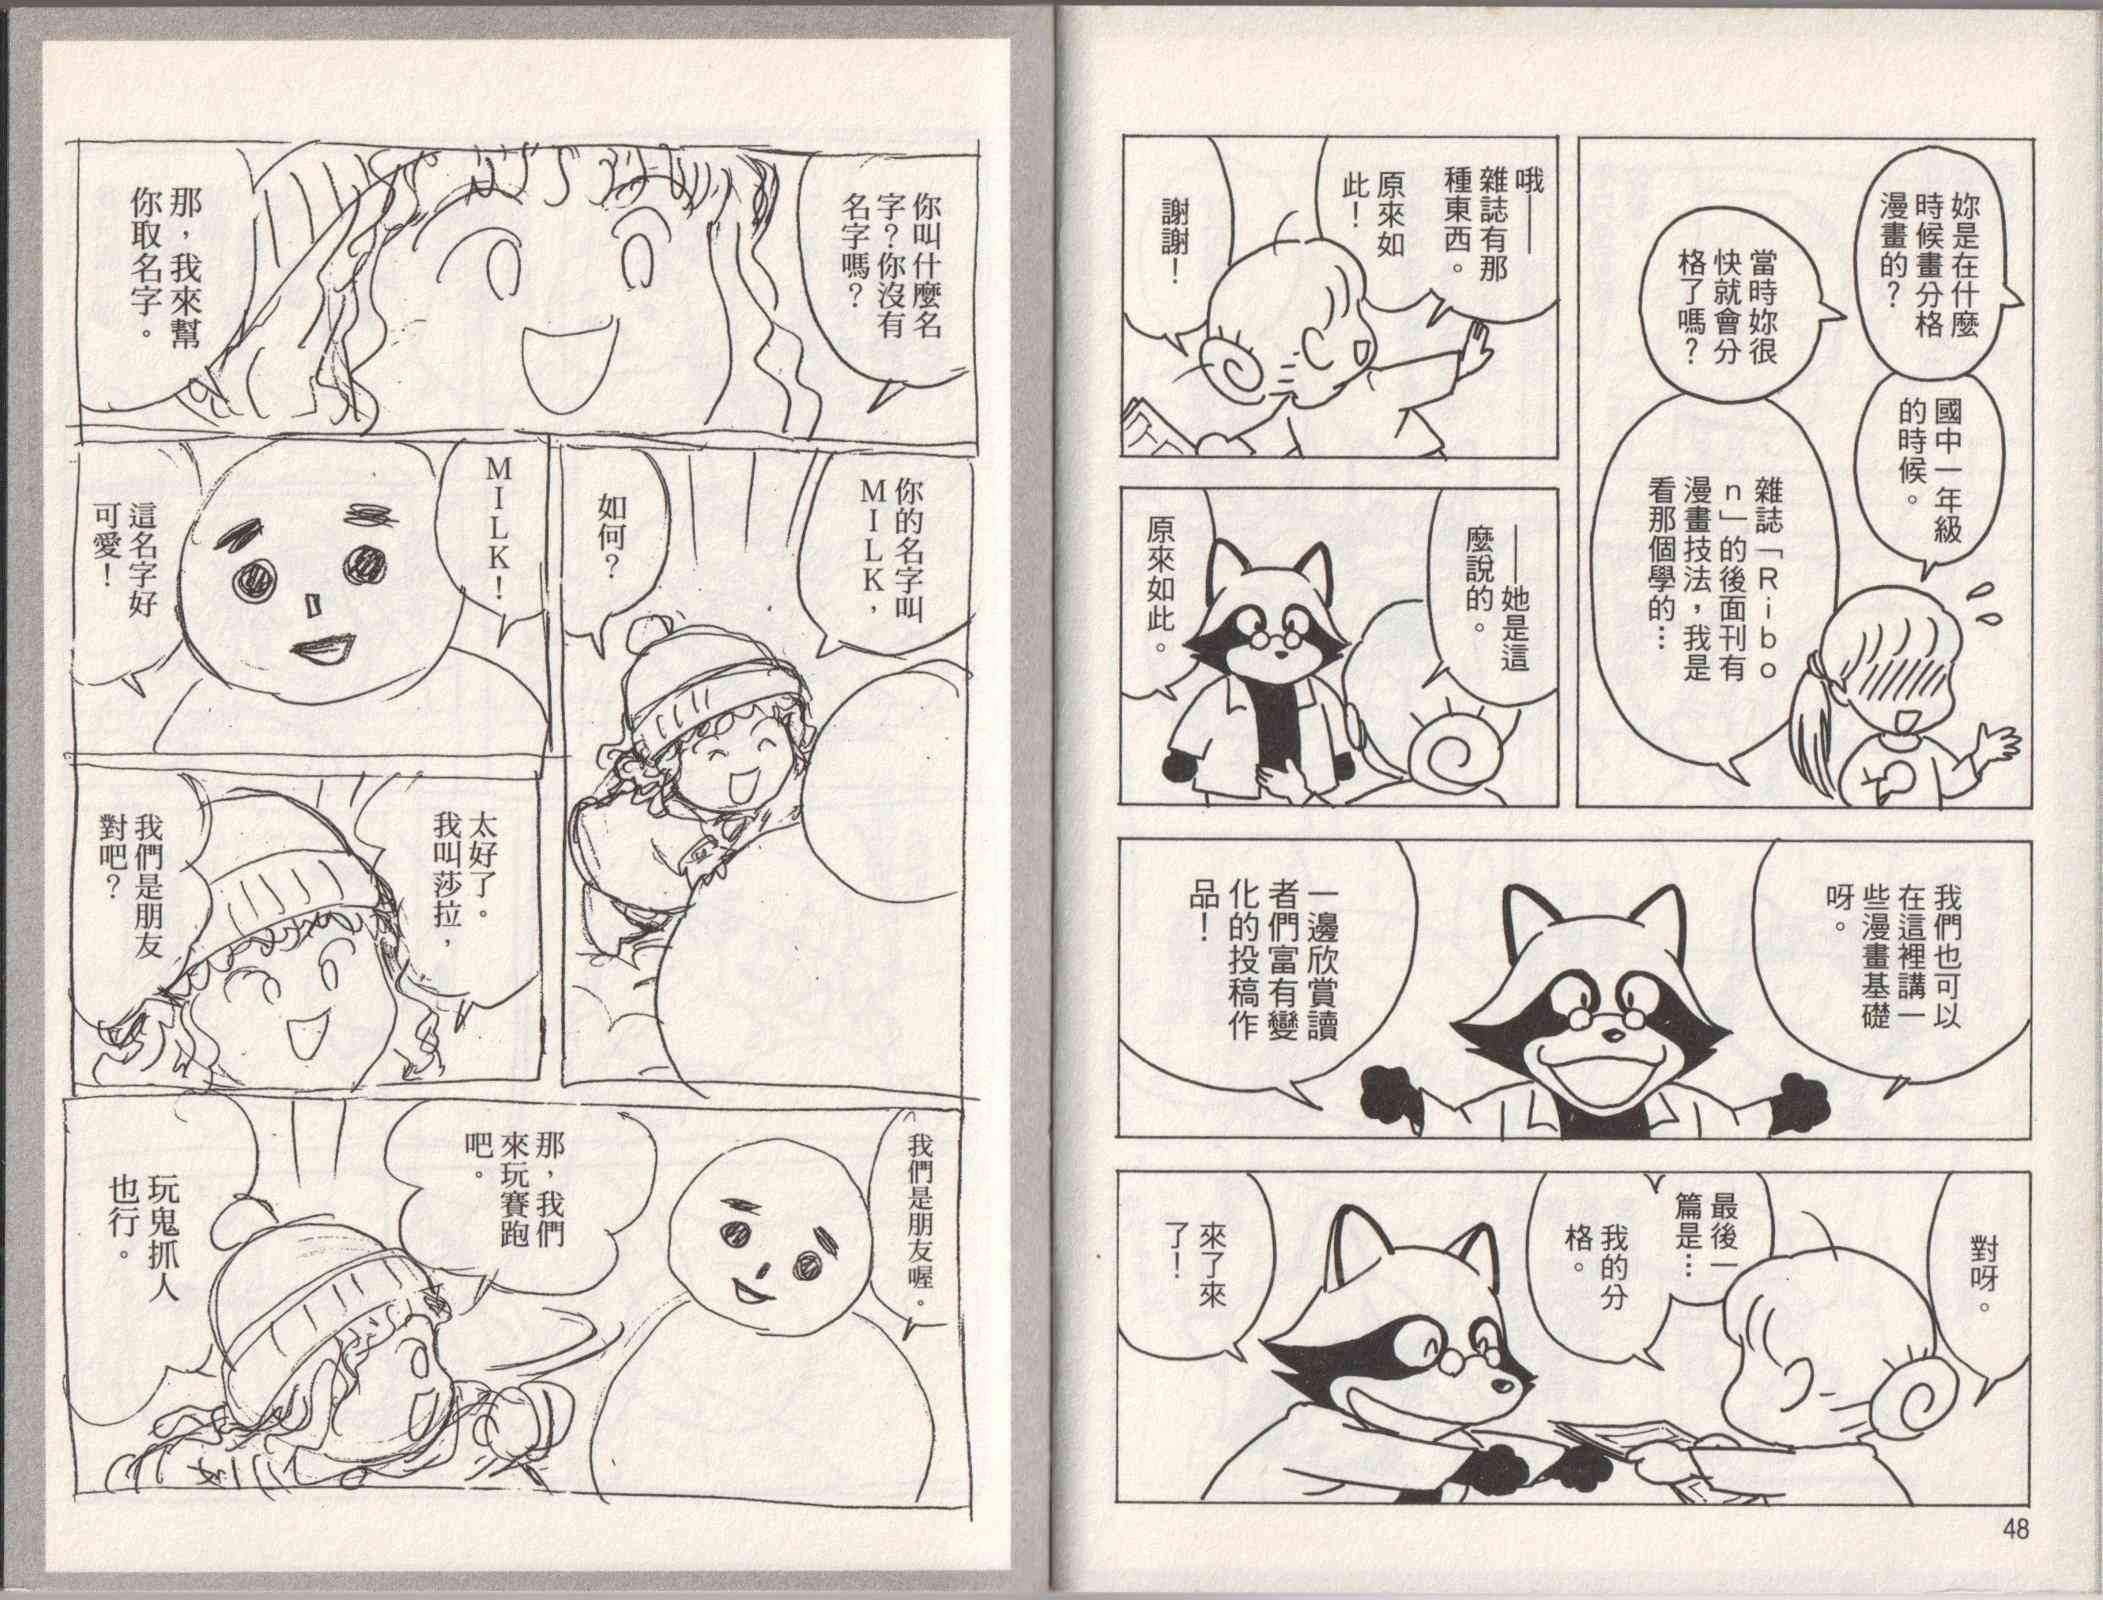 妳是在什麼
時候畫分格
漫畫的？
國中一年級
的時候。
當時妳很
快就會分
格了嗎？
雜誌「Ｒｉｂｏ
ｎ」的後面刊有
漫畫技法，我是
看那個學的…
哦——
雜誌有那
種東西。
原來如
此！
謝謝！
——她是這
麼說的。
原來如此。
我們也可以
在這裡講一
些漫畫基礎
呀。
一邊欣賞讀
者們富有變
化的投稿作
品！
對呀。
最後一
篇是…
我的分
格。
來了來
了！
48
你叫什麼名
字？你沒有
名字嗎？
那，我來幫
你取名字。
你的名字叫
ＭＩＬＫ，
如何？
ＭＩＬＫ！
這名字好
可愛！
太好了。
我叫莎拉，
我們是朋友
對吧？
我們是朋友喔。
那，我們
來玩賽跑
吧。
玩鬼抓人
也行。